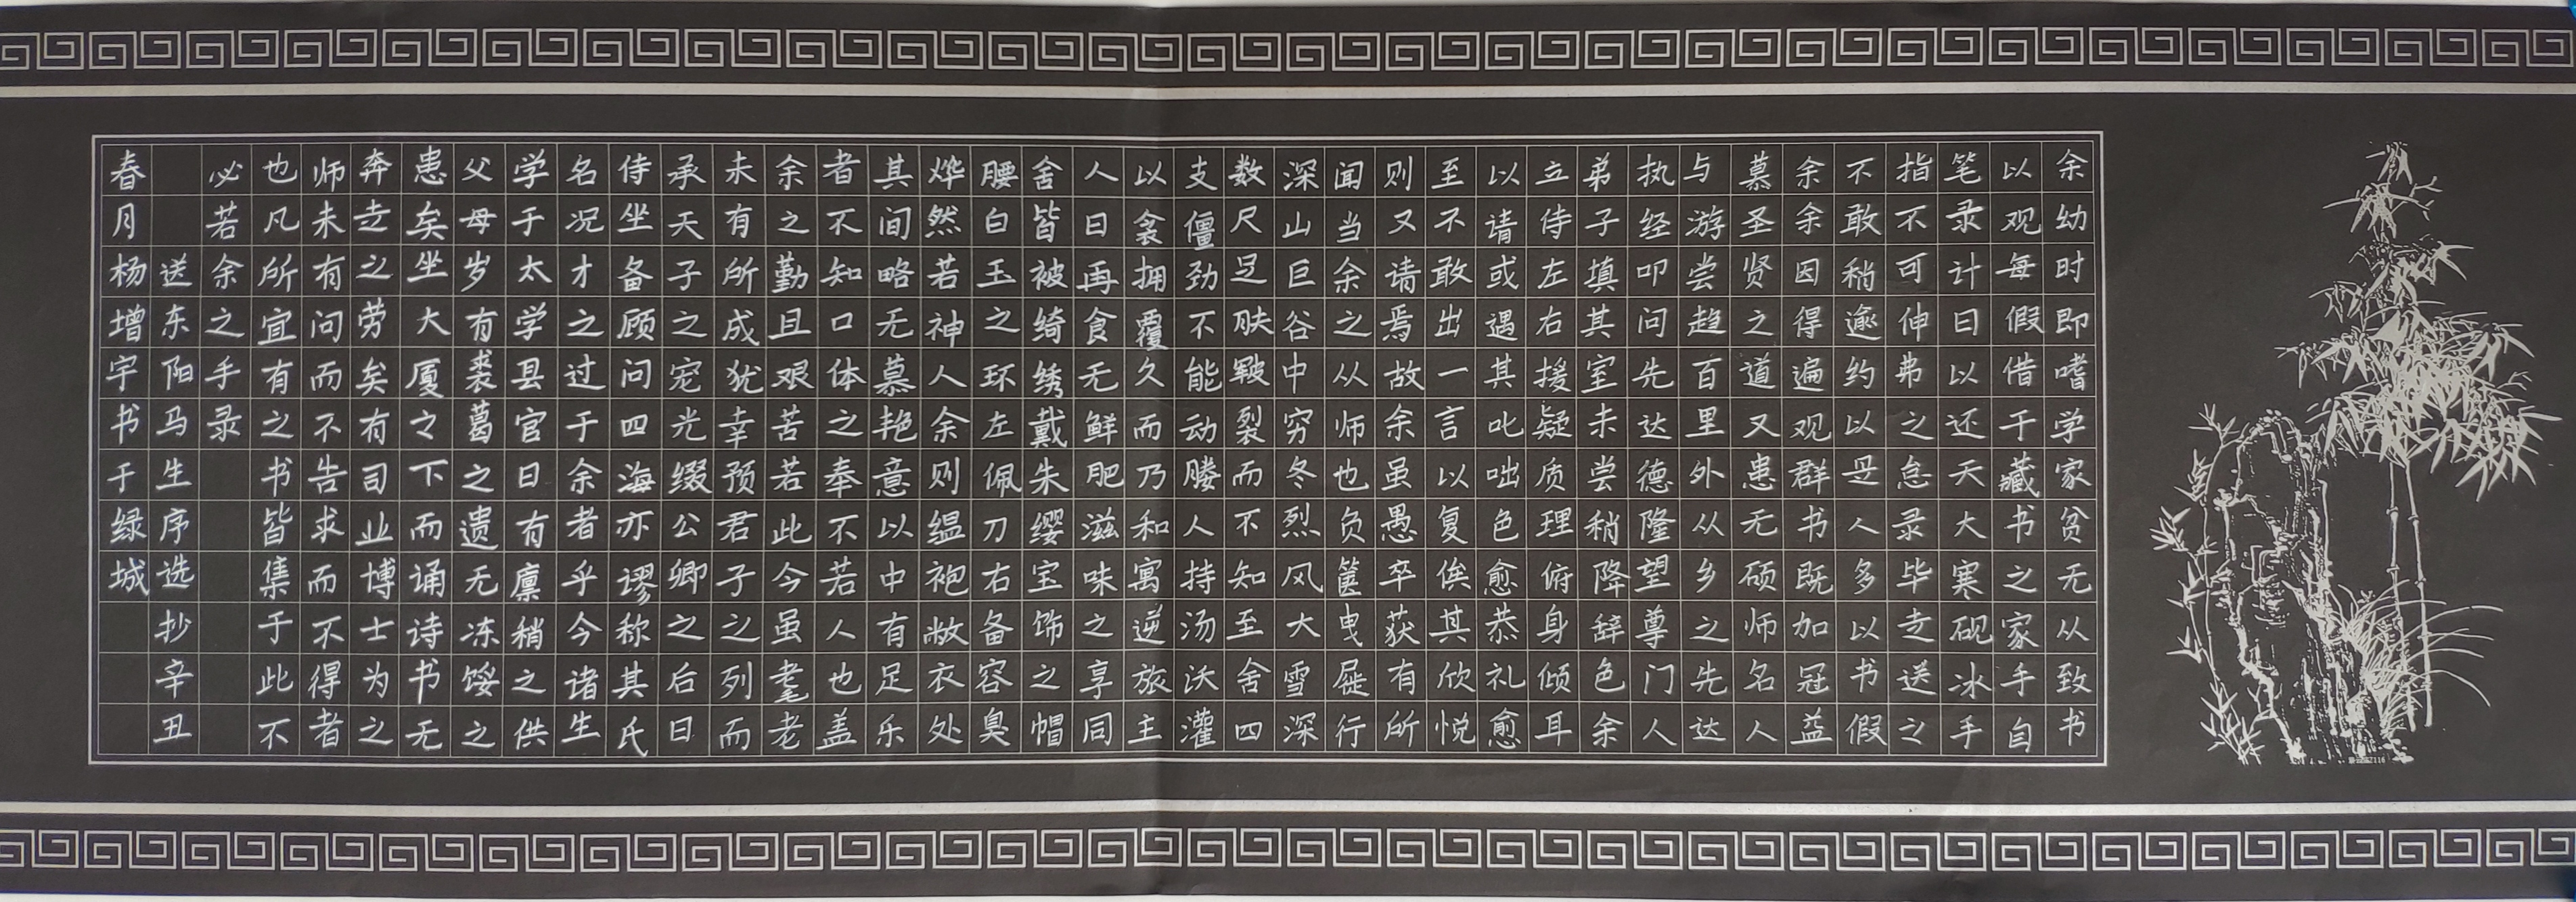 余幼时即嗜学家贫无从致书
以观每假借于藏书之家手自
笔录计日以还天大寒砚冰手
指不可伸弗之怠录毕走送之
不敢稍逾约以是人多以书假
余余因得遍观群书既加冠益
慕圣贤之道又患无硕师名人
与游尝趋百里外从乡之先达
执经叩问先达德隆望尊门人
弟子填其室未尝稍降辞色余
立侍左右援疑质理俯身倾耳
以请或遇其叱咄色愈恭礼愈
至不敢出一言以复俟其欣悦
则又请焉故余虽愚卒获有所
闻当余之从师也负箧曳屣行
深山巨谷中穷冬烈风大雪深
数尺足肤皲裂而不知至舍四
支僵劲不能动媵人持汤沃灌
以衾拥覆久而乃和寓逆旅主
人日再食无鲜肥滋味之享同
舍皆被绮绣戴朱缨宝饰之帽
腰白玉之环左佩刀右备容臭
烨然若神人余则缊袍敝衣处
其间略无慕艳意以中有足乐
者不知口体之奉不若人也盖
余之勤且艰苦若此今虽耄老
未有所成犹幸预君子之列而
承天子之宠光缀公卿之后日
侍坐备顾问四海亦谬称其氏
名况才之过于余者乎今诸生
学于太学县官日有廪稍之供
父母岁有裘葛之遗无冻馁之
患矣坐大厦之下而诵诗书无
奔走之劳矣有司业博士为之
师未有问而不告求而不得者
也凡所宜有之书皆集于此不
必若余之手录
送东阳马生序选抄辛丑
春月杨增宇书于绿城